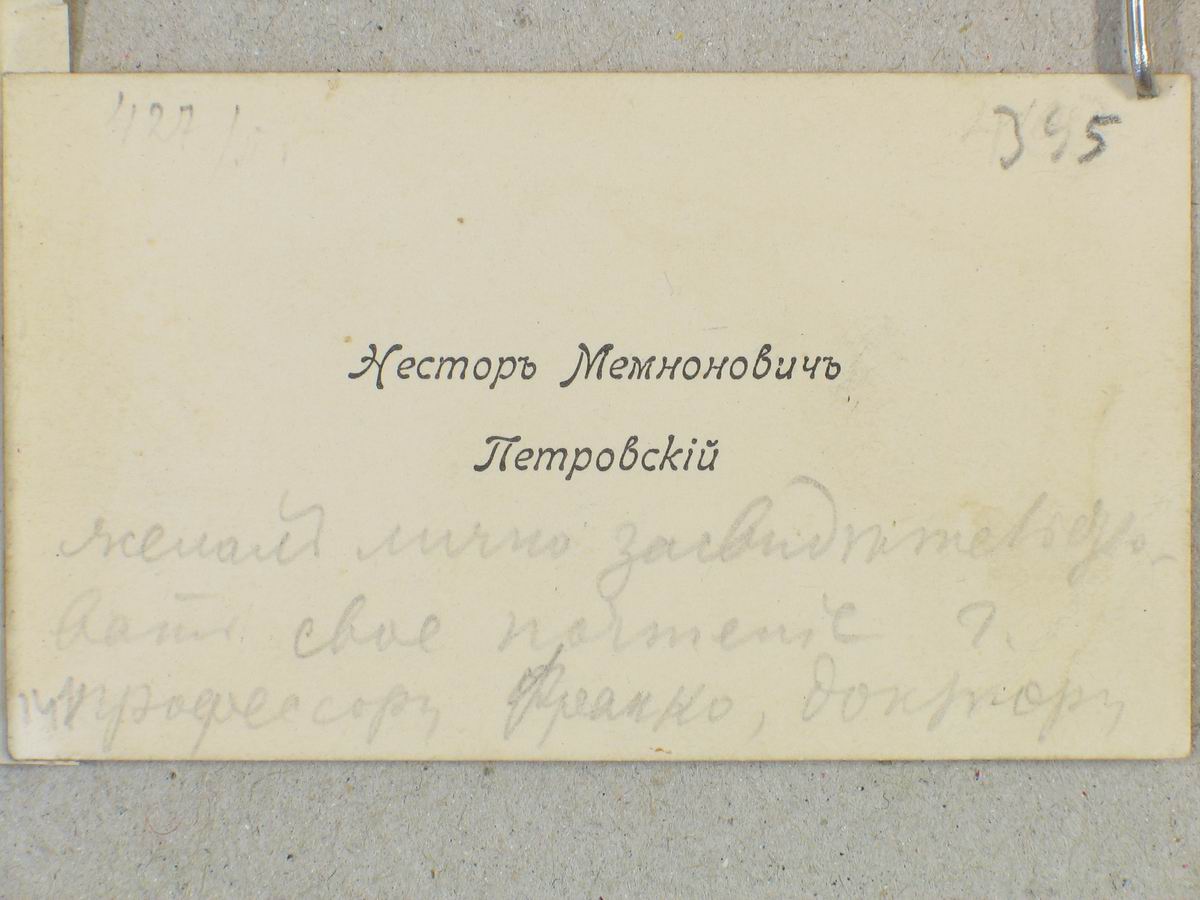 395
Несторъ Мемноновичъ
Петровскій
желалъ лично засвидѣтельство-
вать свое почтеніе г.
профессору Франко, доктору